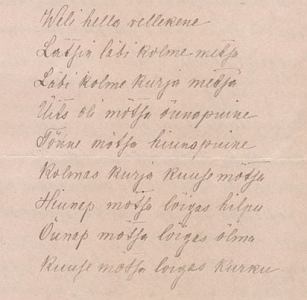 Weli hella vellekene
Lätsin läbi kolme metsa
Läbi kolme kurja metsa
Üits oli mõtsa õunapuine
Tõine mõtsa
Kolmas kurja kuuse mõtsa
mõtsa lõigas hilpu
Õunap mõtsa lõigas õlma
Kuuse mõtsa lõigas kurku